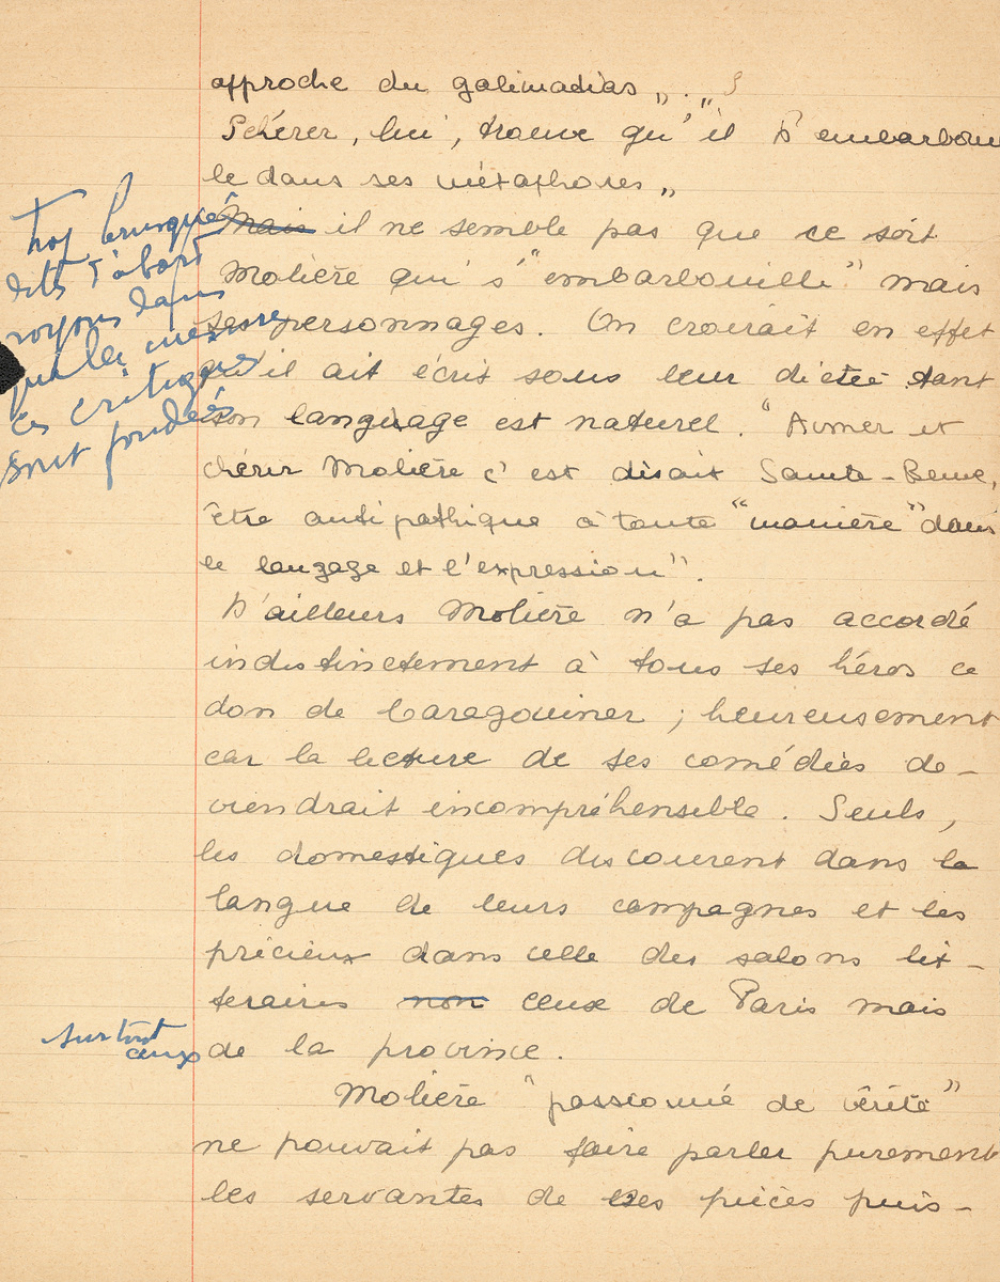 approche du galimadias„ . "
Schérer, lui, trouve qu'il s'embarboui
le dans ses métaphores„
Mais il ne semble pas que ce soit
Molière qui s'"embarbouille" mais
ses personnages. On croirait en effet
qu'il ait écrit sous leur dictée tant
son language est naturel. "Aimer et
chérir Molière c'est disait Sainte-Beuve,
être antipathique à toute "manière" dans
le langage et l'expression".
D'ailleurs Molière n'a pas accordé
indistinctement à tous ses héros ce
don de baragouiner ; heureusement
car la lecture de ses comédies de-
viendrait incompréhensible. Seuls,
les domestiques discourent dans la
langue de leurs campagnes et les
précieux dans celle des salons lit-
teraires non ceux de Paris mais
de la province.
Molière "passionné de vérité"
ne pouvait pas faire parler purement
les servantes de ses pièces puis-
trop brusque
dites d'abord
voyons dans
quelle mesure
ces critiques
sont fondées
surtout
ceux